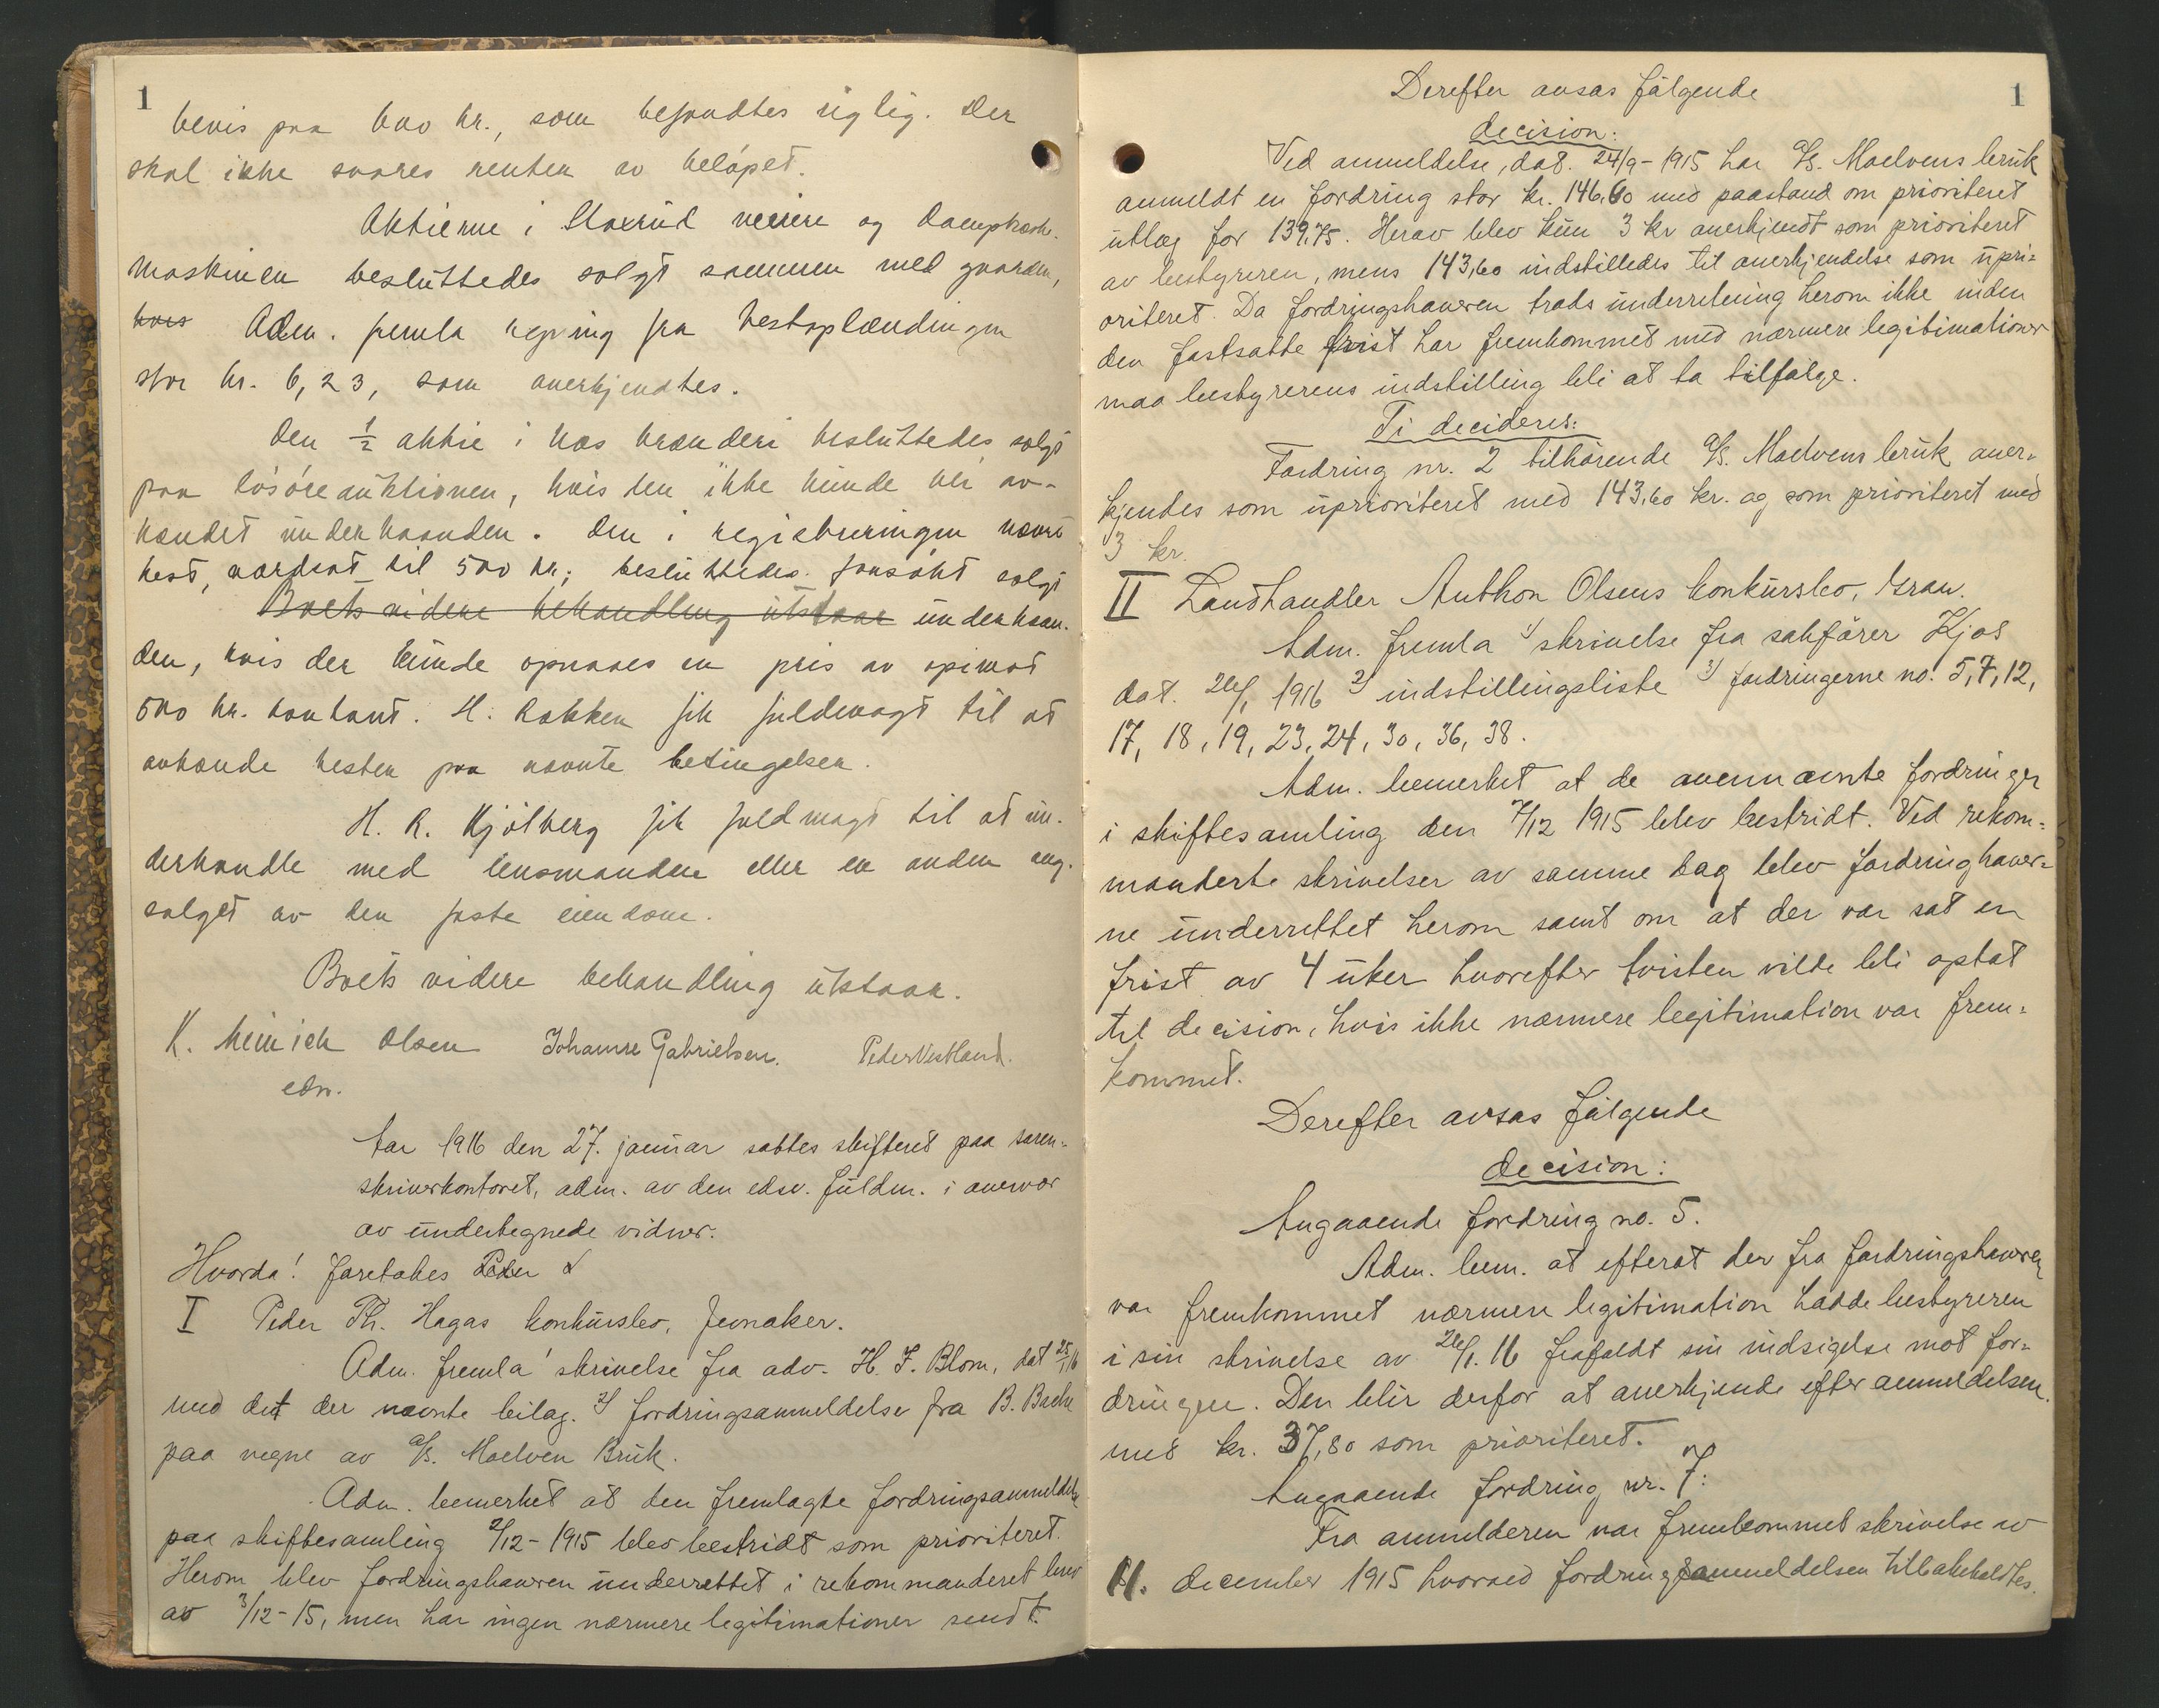 1
bevis paa 600 kr., som befandtes rigtig. Der
skal ikke svares renter av beløpet.
Aktierne i Staxrud meieri og damptræske-
maskinen besluttedes solgt sammen med gaarden,
hvis Adm. fremla regning fra Vestoplændingen
stor kr. 6,23, som anerkjendtes.
Den ½ aktie i Næs brænderi besluttedes solgt
paa løsøreauktionen, hvis den ikke kunde bli av-
hændet underhaanden. Den i registreringen nævnte
hest, værdsat til 500 kr., besluttedes forsøkt solgt
Boets videre behandling utstaar underhaan-
den, hvis der kunde opnaaes en pris av opimot
500 kr. kontant. H. Rokken fik fuldmagt til at
avhænde hesten paa nævnte betingelser.
H. R. Kjølberg fik fuldmagt til at un-
derhandle med lensmanden eller en anden ang.
salget av den faste eiendom.
Boets videre behandling utstaar.
K. Heinrich Olsen Johanne Gabrielsen. Peder Vestland.
edsv.
Aar 1916 den 27. januar sattes skifteret paa soren-
skriverkontoret, adm. av den edsv. fuldm. i overvær
av undertegnede vidner.
Hvorda! foretokes Peder
I Peder Th. Hagas konkursbo, Jevnaker.
Adm. fremla 1 skrivelse fra adv. H. F. Blom, dat 25/1 16
med det der nævnte bilag. 2) fordringsanmeldelse fra B. Bache
paa vegne av A/S. Moelven Bruk.
Adm. bemerket at den fremlagte fordringsanmeldelse
paa skiftesamling 2/12-1915 blev bestridt som prioriteret.
Herom blev fordringshaveren underrettet i rekommanderet brev
av 3/12-15, men har ingen nærmere legitimationer sendt.
1
Derefter avsas følgende
decision:
Ved anmeldelse, dat. 24/9-1915 har A/S. Moelvens bruk
anmeldt en fordring stor kr. 146.60 med paastand om prioriteret
utlæg for 139.75. Herav blev kun 3 kr anerkjendt som prioriteret
av bestyreren, mens 143,60 indstilledes til anerkjendelse som upri-
oriteret. Da fordringshaveren trods underretning herom ikke inden
den fastsatte frist har fremkommet med nærmere legitimationer
maa bestyrerens indstilling bli at ta tilfølge.
Ti decideres:
Fordring nr. 2 tilhørende A/S. Moelvens bruk aner-
kjendes som uprioriteret med 143,60 kr. og som prioriteret med
3 kr.
II Landhandler Anthon Olsens konkursbo, Gran.
Adm. fremla 1) skrivelse fra sakfører Kjos
dat. 26/1 1916 2) indstillingsliste 3) fordringerne no. 5, 7, 12,
17, 18, 19, 23, 24, 30, 36, 38.
Adm. bemerket at de ovennævnte fordringer
i skiftesamling den 7/12 1915 blev bestridt. Ved rekom-
manderte skrivelser av samme dag blev fordringhaver-
ne underrettet herom samt om at der var sat en
frist av 4 uker hvorefter tvisten vilde bli optat
til decision, hvis ikke nærmere legitimation var frem-
kommet.
Derefter avsas følgende
decision:
Angaaende fordring no. 5.
Adm. bem. at efterat der fra fordringshaveren
var fremkommet nærmere legitimation hadde bestyreren
i sin skrivelse av 26/1.16 frafaldt sin indsigelse mot for-
dringen. Den blir derfor at anerkjende efter anmeldelsen
med kr. 37,80 som prioriteret.
Angaaende fordring nr. 7:
Fra anmelderen var fremkommet skrivelse av
11. december 1915 hvorved fordringsanmeldelsen tilbakekaldtes.